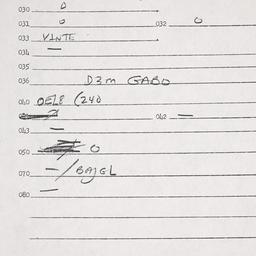 030 0
031 0 032 0
033 VANTE
034 —
035
036 D3m GABO
040 OEL8 (240
042 —
043 —
050 0
070 — / BAJGL
080 —